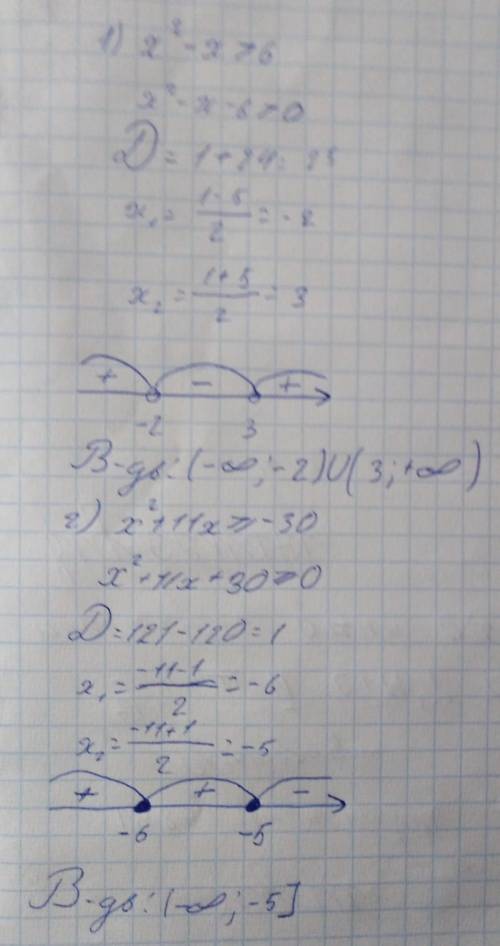 1) x² - x > 6
x² - x - 6 > 0
D = 1 + 24 = 25
x₁ = (1-5)/2 = -2
x₂ = (1+5)/2 = 3
+ - +
-2 3
В-дь: (-∞; -2)∪(3; +∞)
2) x² + 11x ≥ -30
x² + 11x + 30 ≥ 0
D = 121 - 120 = 1
x₁ = (-11-1)/2 = -6
x₂ = (-11+1)/2 = -5
+ + -
-6 -5
В-дь: (-∞; -5]